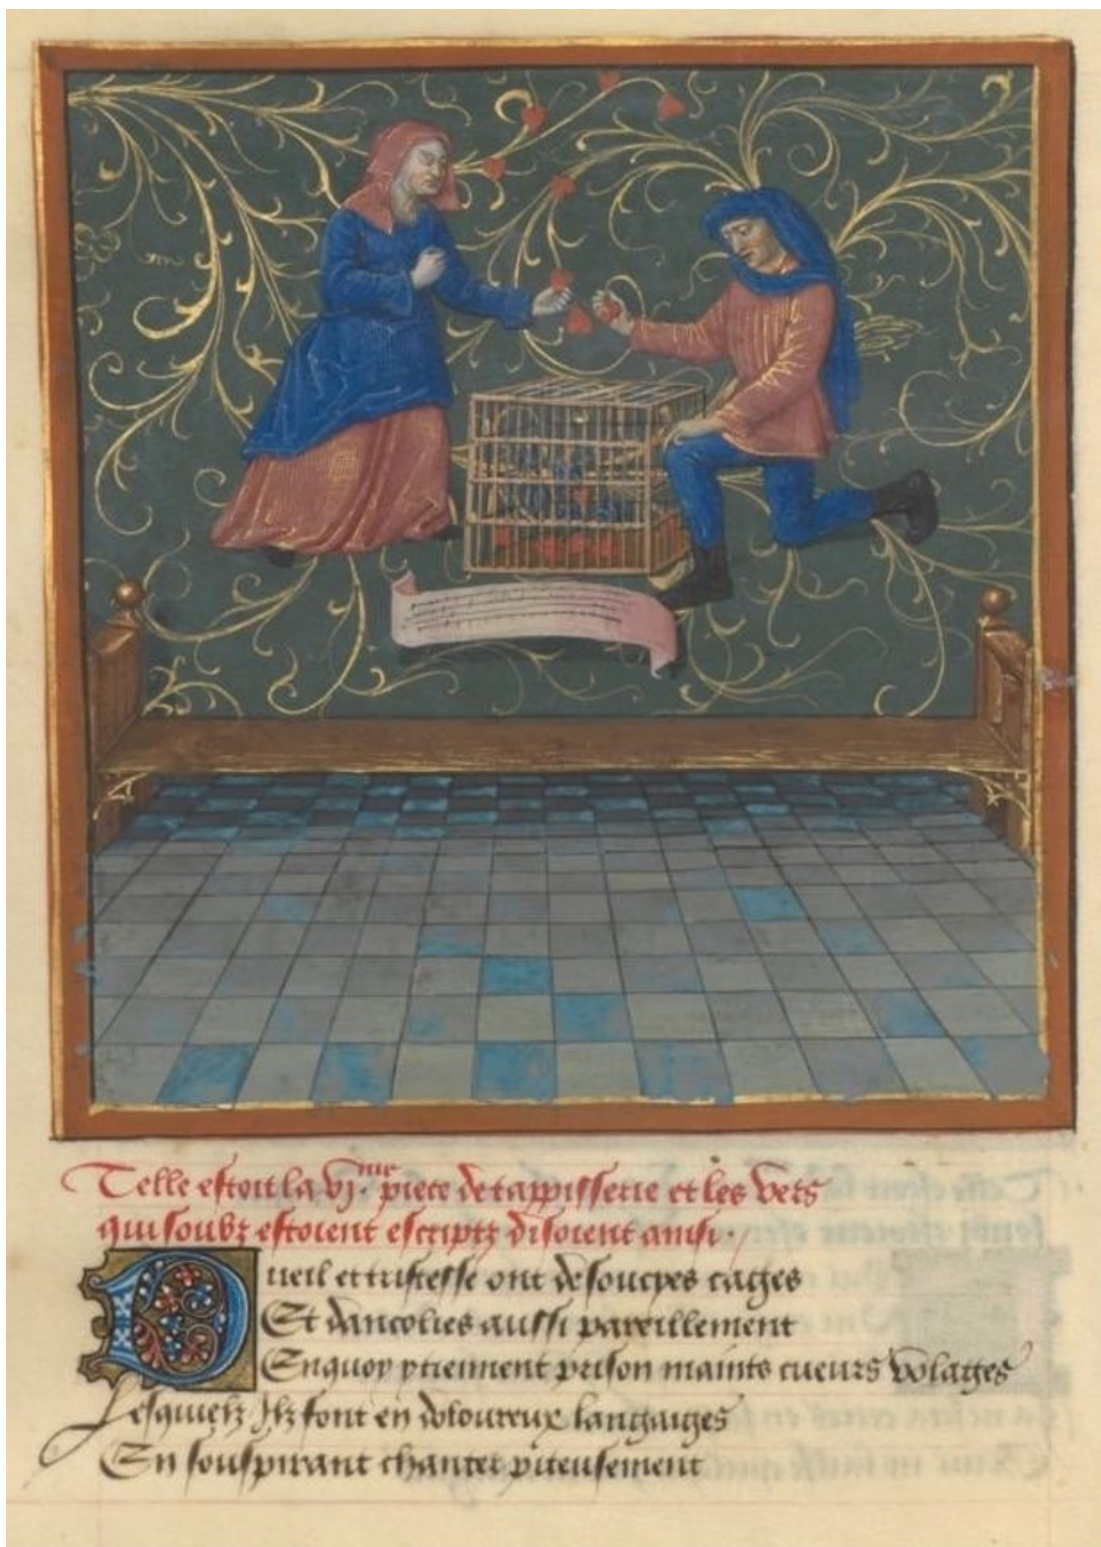 Telle estoit la vj.me piece de tappisserie et les vers
qui soubz estoient escriptz disoient ainsi.
Dueil et tristesse ont de soucyes caiges
Et dancolies aussi pareillement
En quoy ytiennent prison maints cueurs volaiges
Lesquelz Ilz font en doloureux langaiges
En souspirant chanter piteusement